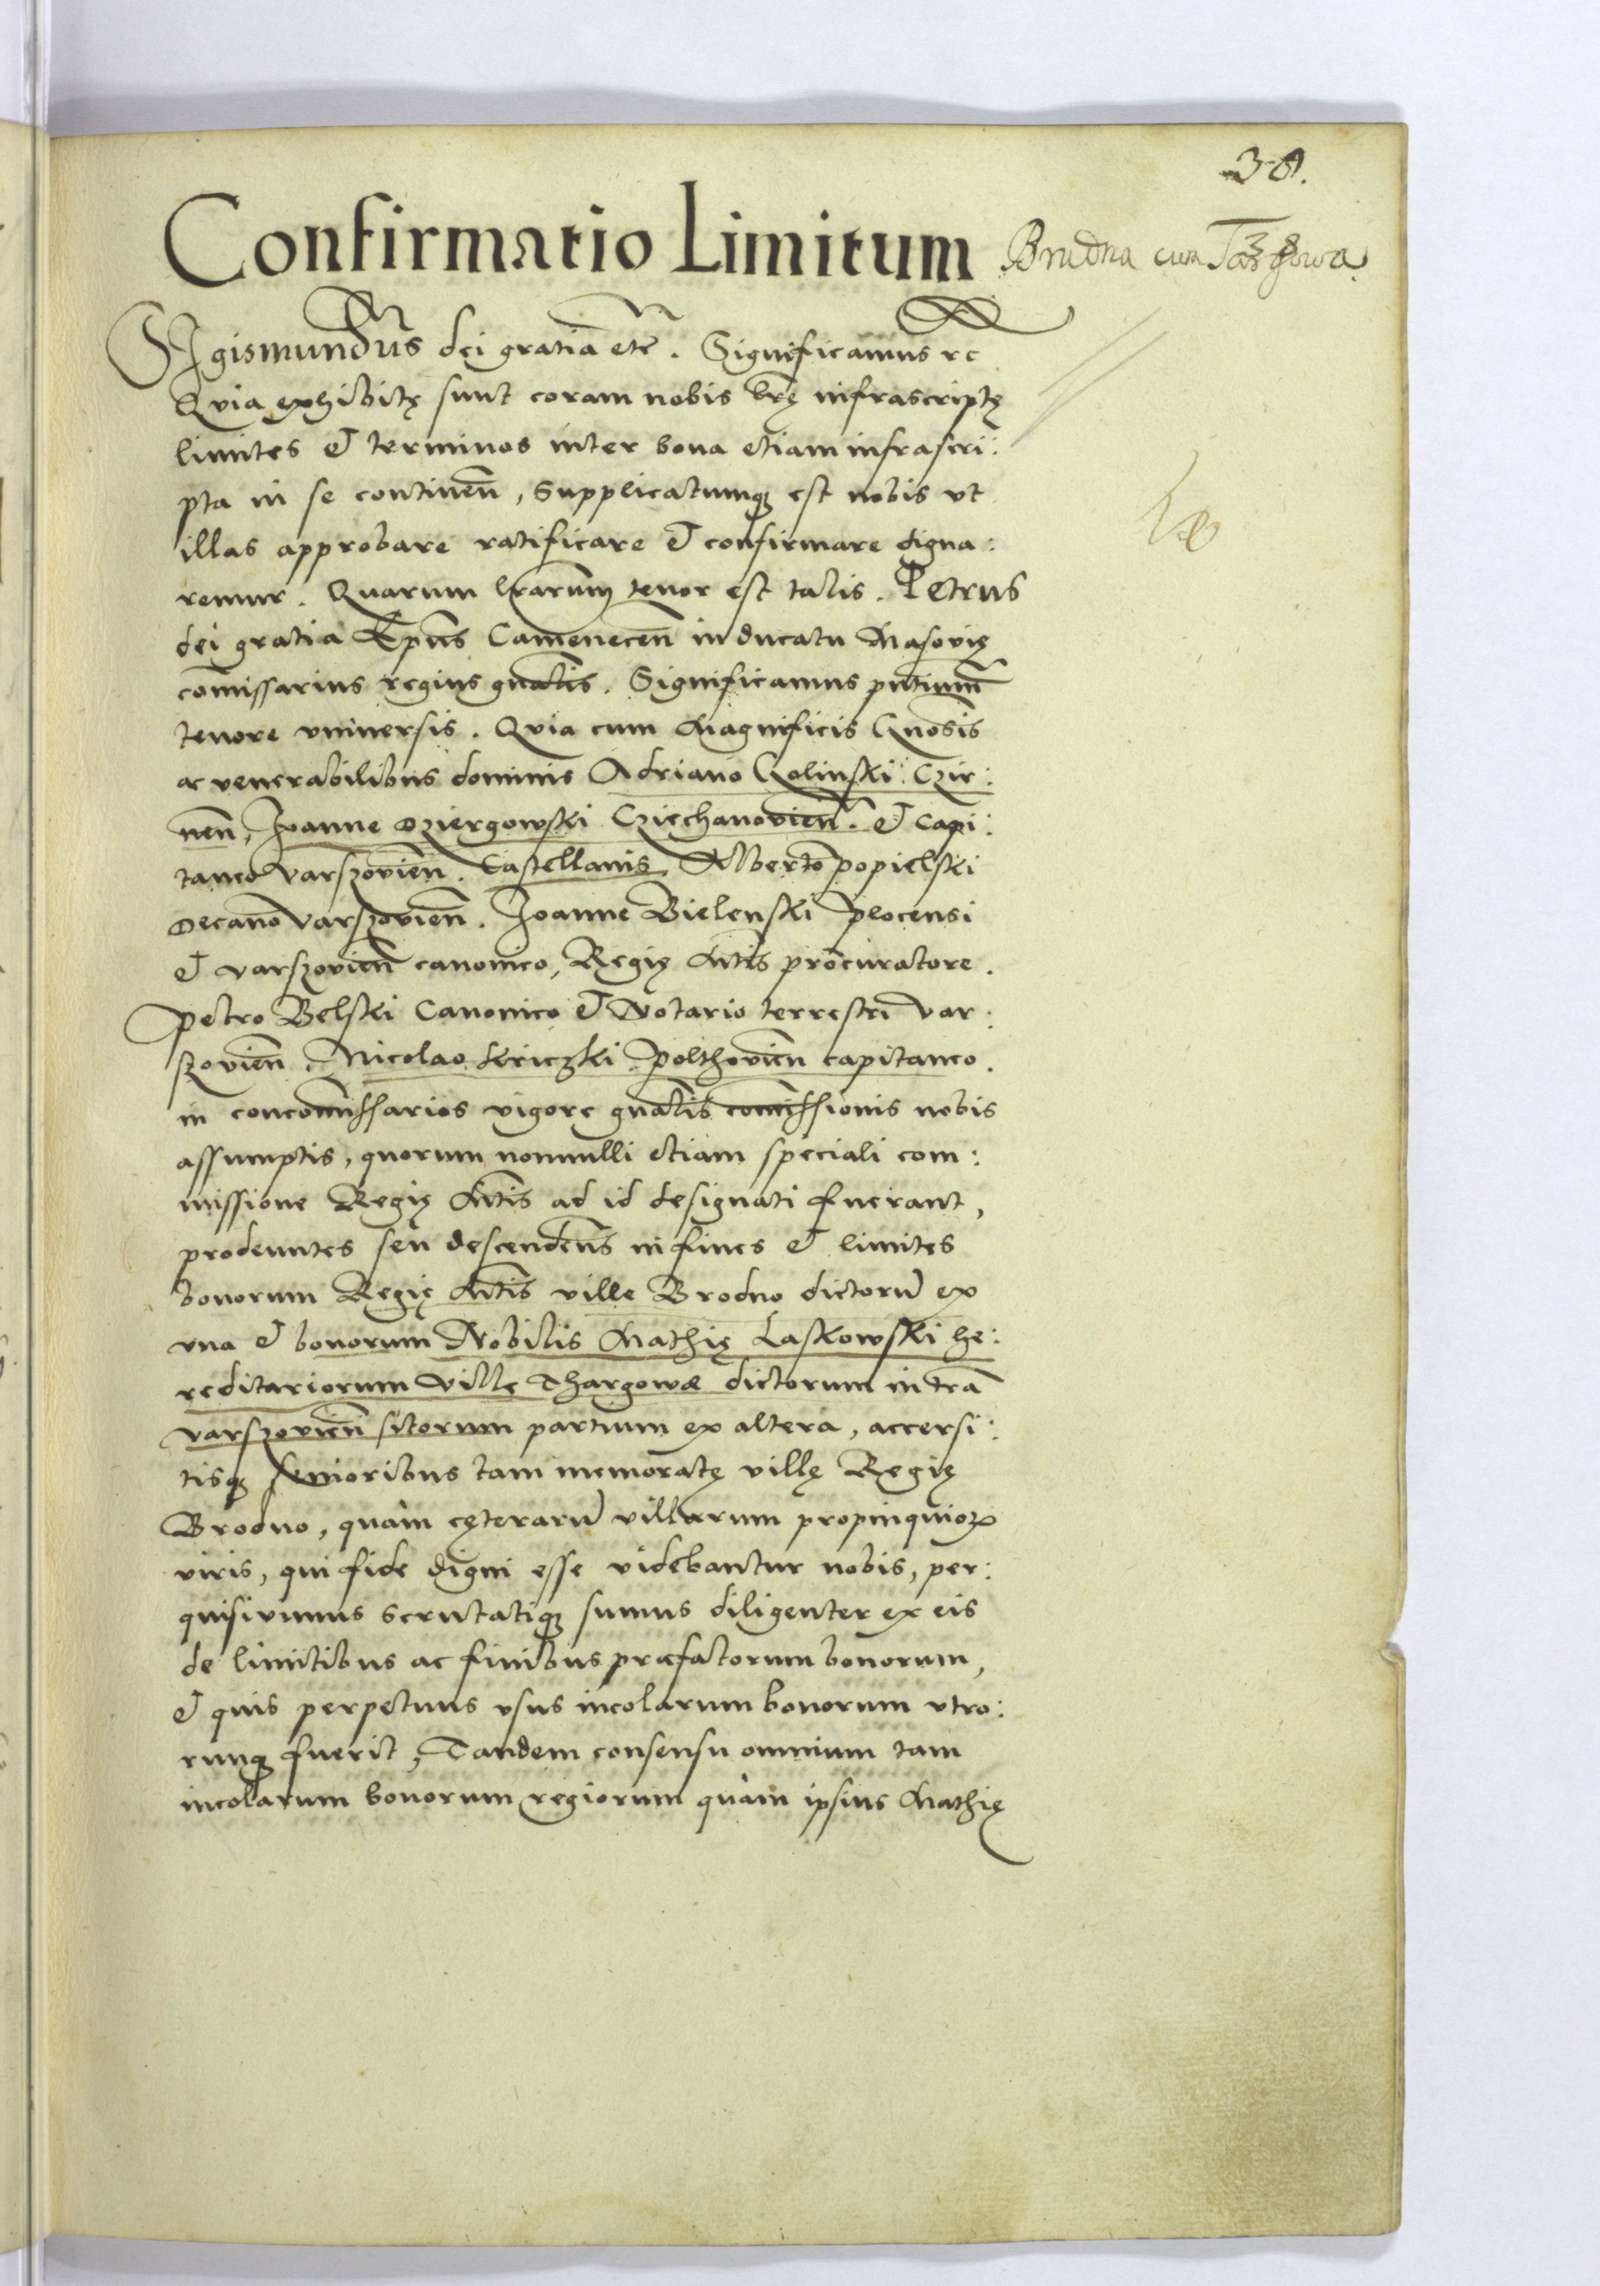 38.
Confirmatio Limitum Brudna cum Targowa
38
SIgismundus dei gratia etc. Significamus rc
Qvia exhibitę sunt coram nobis lrę infrascriptę
limites et terminos inter bona etiam infrascri:
pta in se continen̄, Supplicatumq3 est nobis vt
illas approbare ratificare et confirmare digna:
remur. Quarum lrarum tenor est talis. Petrus
dei gratia Epūs Camenecen̄ in ducatu Masovię
comissarius regius gnalis. Significamus pntium
tenore vniuersis. Qvia cum Magnificis Gnosis
ac venerabilibus dominis Adriano Golinski Czir:
nen̄, Joanne Dziergowski Cziechanovien̄. et Capi:
taneo Varszovien̄. Castellanis, Alberto Popielski
Decano Varszovien̄. Joanne Bielenski Plocensi
et Varszovien̄ canonico, Regię Mtis procuratore.
Petro Belski Canonico et Notario terrestri Var:
szovien̄. Nicolao Kriczki Polthovien̄ capitaneo.
in concomissarios vigore gnalis comissionis nobis
assumptis, quorum nonnulli etiam speciali com:
missione Regię Mtis ad id designati fuerant,
prodeuntes seu descendens̄ in fines et limites
bonorum Regię Mtis ville Brodno dictorū ex
vna et bonorum Nobilis Mathię Laskowski he:
reditariorum Villę Thargowæ dictorum in tra
Varszovien̄ sitorum partium ex altera, accersi:
tisq3 senioribus tam memoratę villę Regię
Brodno, quàm cęterarū villarum propinquioꝝ
viris, qui fide digni esse videbantur nobis, per:
quisiuimus scrutatiq3 sumus diligenter ex eis
de limitibus ac finibus præfatorum bonorum,
et quis perpetuus vsus incolarum bonorum vtro:
rumq3 fuerit, Tandem consensu omnium tam
incolarum bonorum regiorum quàm ipsius Mathię